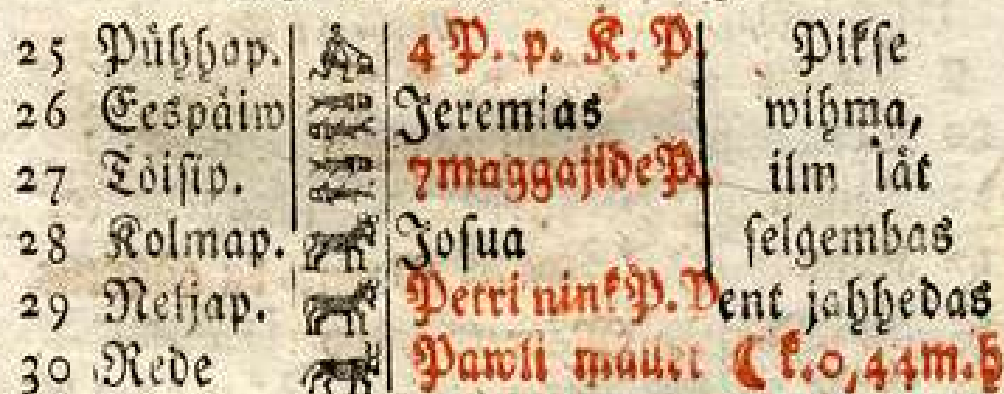 25 Pühhop. 4 P. p. K. P. Pikse
26 Eespäiw Jeremias wihma,
27 Töisip. 7 maggajide P. ilm lät
28 Kolmap. Josua selgembas
29 Neljap. Petri nink P. ent jahhedas
30 Rede Pawli mället ☾ k. 0, 44 m. h